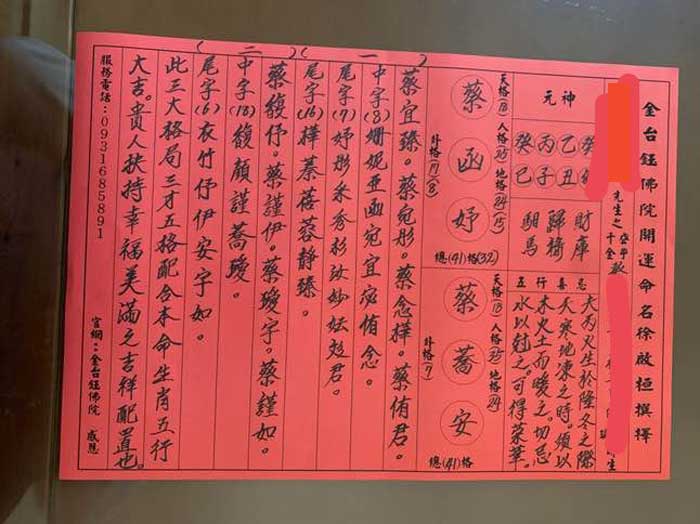 金台鈺佛院開運命名徐啟恒撰擇
先生之
千金
元神
癸乙丙癸
丑子巳
財庫
歸櫃
馹馬
五行喜忌
大為火生於隆冬之際
天寒地凍之時。須以
木火土而暖之。切忌
水以尅之。可得菜華。
天格(18)人格(25)地格(24)(15)
蔡函妤
外格(17)(8)
總(41)格(32)
天格(18)人格(35)地格(24)
蔡蕎安
外格(7)
總(41)格
(一)
蔡宜臻。蔡宛彤。蔡念樺。蔡侑君。
中字(8)姍妮亞函宛宜宓侑念。
尾字(7)妤彤禾秀杉汝妙妘彣君。
尾字(16)樺蓁蓓蓉靜臻。
(二)
蔡馥伃。蔡謹伊。蔡璦宇。蔡謹如。
中字(18)馥顏謹蕎璦。
尾字(6)衣竹伃伊安宇如。
此三大格局三才五格配合本命生肖五行
大吉。貴人扶持幸福美滿之吉祥配置也。
服務電話：0931685891
官網：金台鈺佛院 感恩